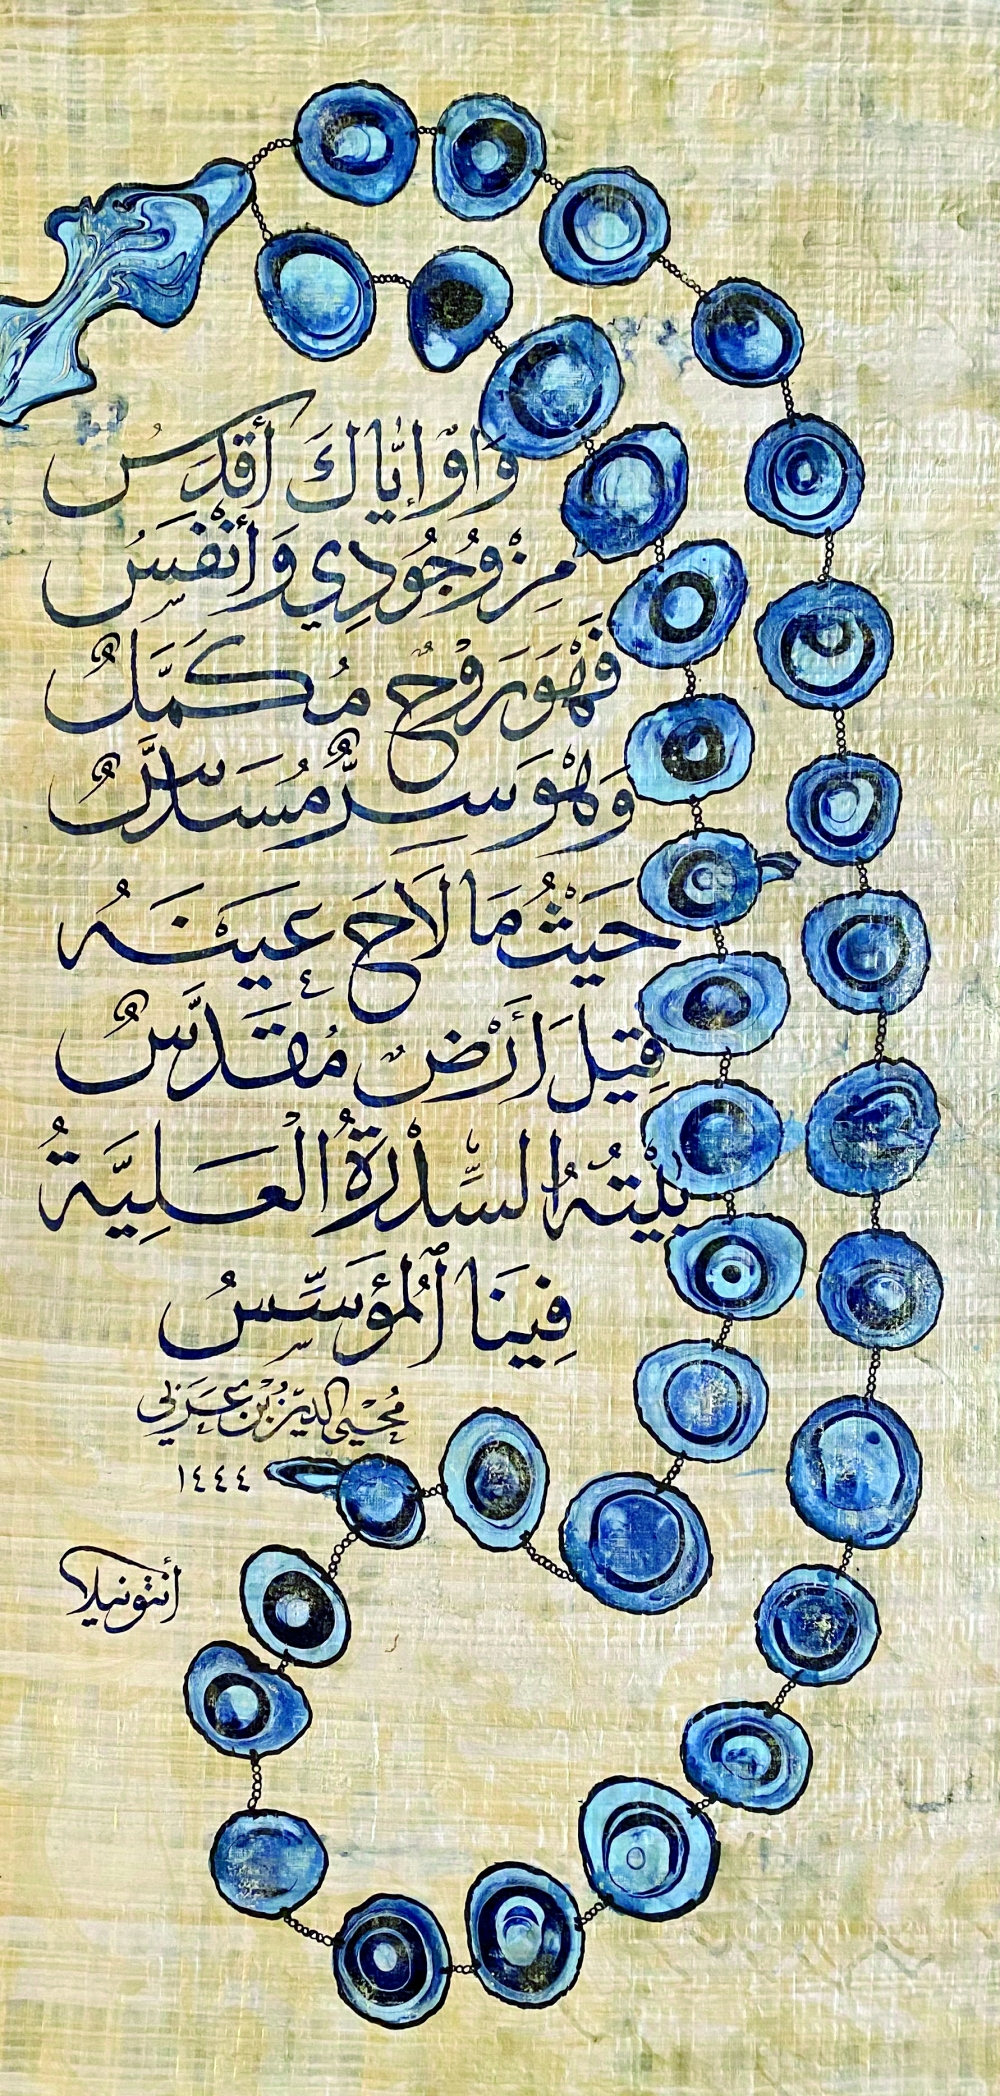 وَاوْ إيَّاكَ أقدَسُ
مِنْ وُجُودِي وَأنْفَسُ
فَهْوَ رَوْحٌ مُكَمَّلٌ
وَهْوَ سِرٌّ مُسَدَّسٌ
حَيْثُمَا لَاحَ عَيْنَهُ
قِيلَ أَرْضٌ مُقَدَّسٌ
بَيْتُهُ السِّدْرَةُ الْعَلِيَّةُ
فِينَا ٱلْمُؤَسَّسُ
مُحْيِي الدِّيْنِ بْنُ عَرَبِي
١٤٤٤
أنتونيلا